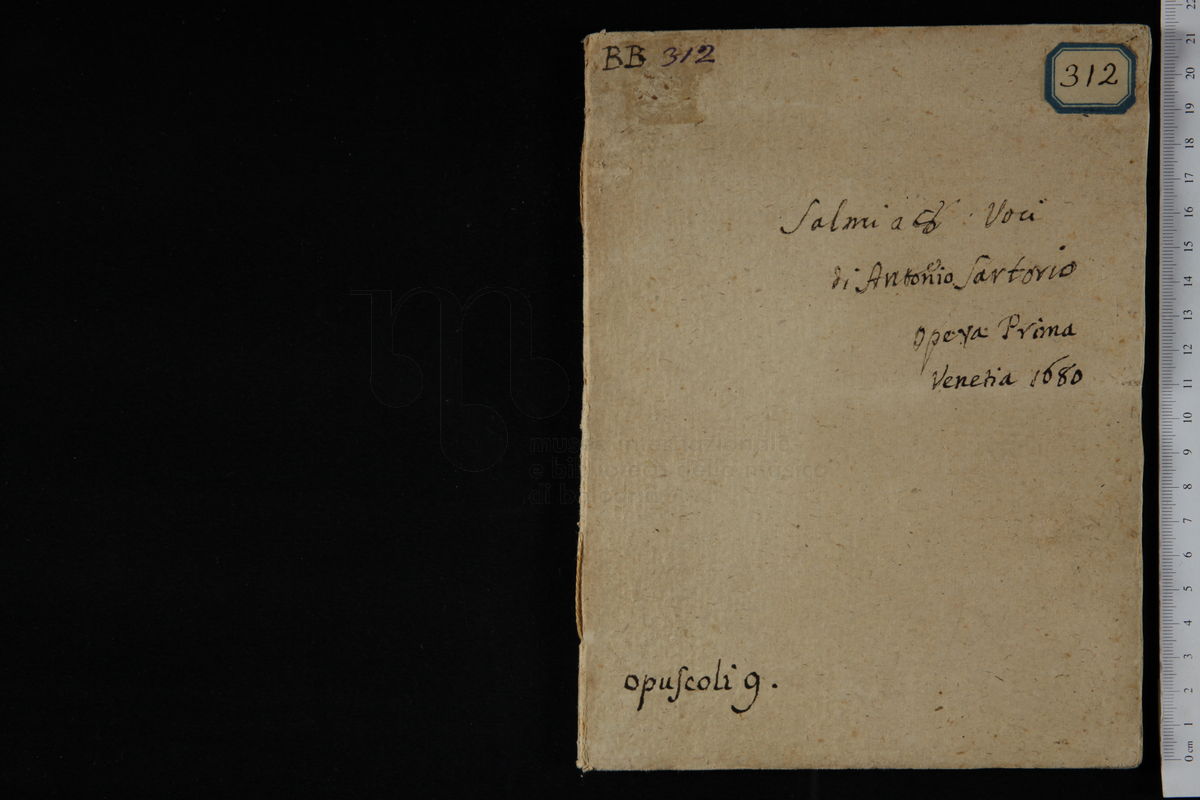 BB 312
312
Salmi a 8 Voci
di Antonio Sartorio
Opera Prima
Venetia 1680
opuſcoli 9.
museo internazionale
e biblioteca della musica
di bologna
0 cm 1 2 3 4 5 6 7 8 9 10 11 12 13 14 15 16 17 18 19 20 21 22